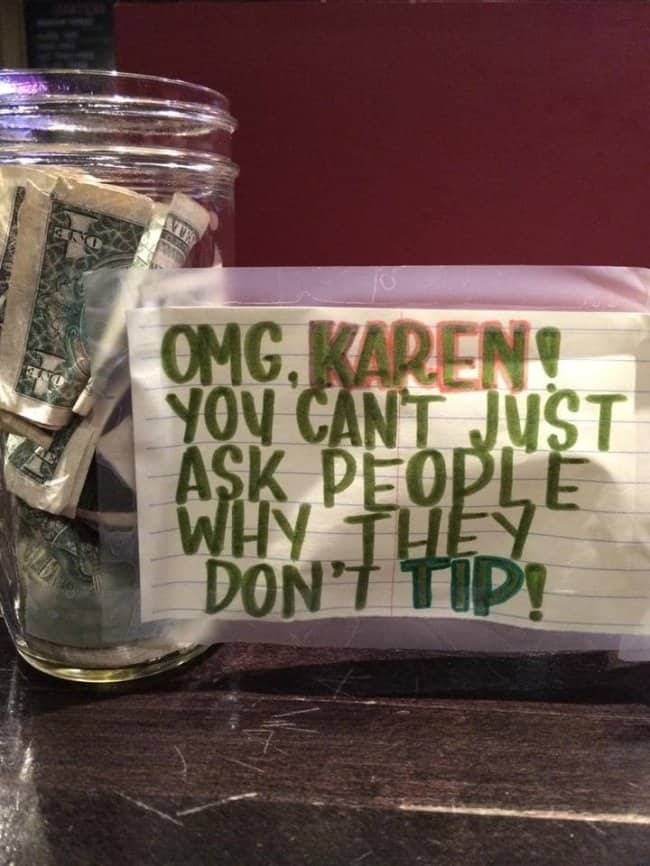 OMG, KAREN!
YOU CAN'T JUST
ASK PEOPLE
WHY THEY
DON'T TIP!